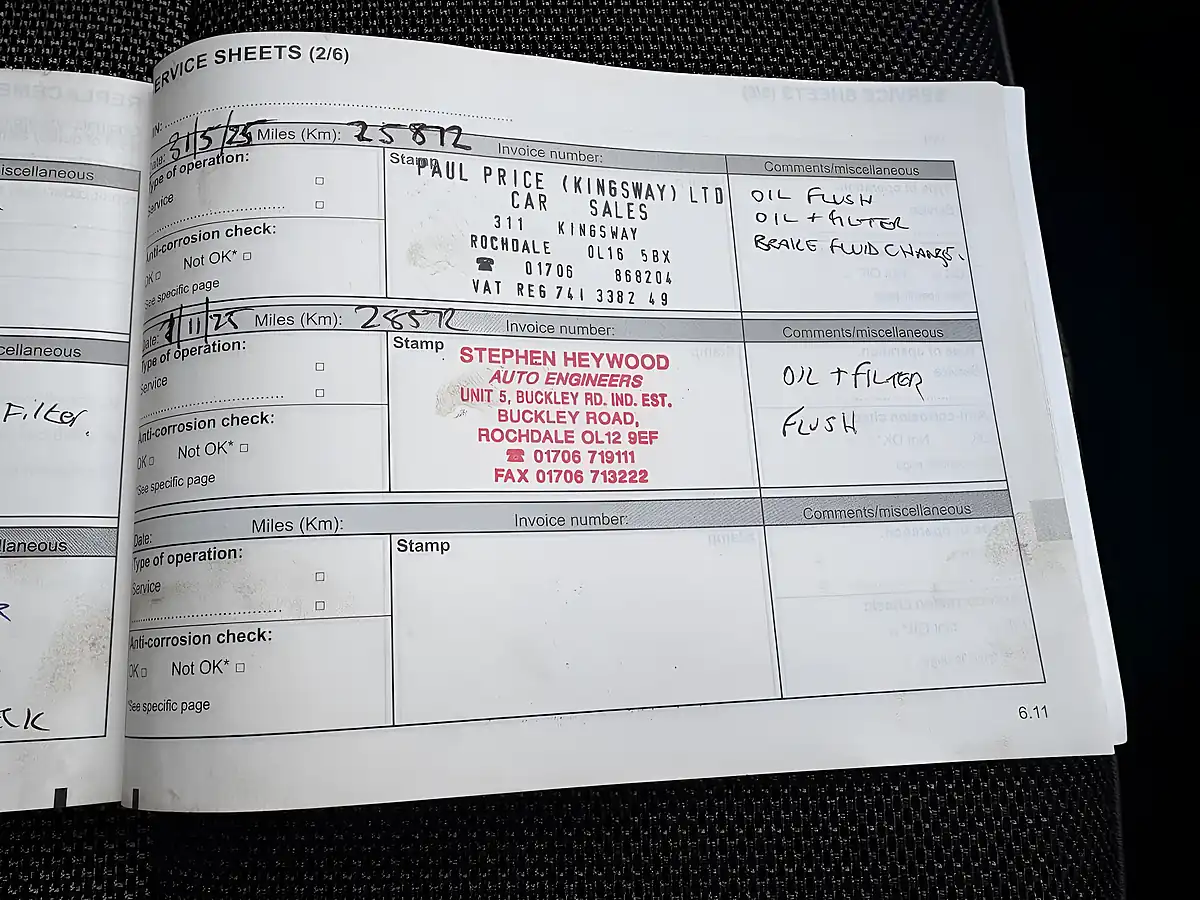 ERVICE SHEETS (2/6)
IN:
Date: 31/5/25 Miles (Km): 25872 Invoice number:
Comments/miscellaneous
Type of operation:
Service
Anti-corrosion check:
OK Not OK*
*See specific page
Stamp
PAUL PRICE (KINGSWAY) LTD
CAR SALES
311 KINGSWAY
ROCHDALE OL16 5BX
☎ 01706 868204
VAT REG 741 3382 49
OIL FLUSH
OIL + FILTER
BRAKE FLUID CHANGE.
Date: /11/25 Miles (Km): 28572 Invoice number:
Comments/miscellaneous
Type of operation:
Service
Anti-corrosion check:
OK Not OK*
*See specific page
Stamp
STEPHEN HEYWOOD
AUTO ENGINEERS
UNIT 5, BUCKLEY RD. IND. EST.
BUCKLEY ROAD,
ROCHDALE OL12 9EF
☎ 01706 719111
FAX 01706 713222
OIL + FILTER
FLUSH
Date: Miles (Km): Invoice number:
Comments/miscellaneous
Type of operation:
Service
Anti-corrosion check:
OK Not OK*
*See specific page
Stamp
6.11
iscellaneous
cellaneous
Filter.
llaneous